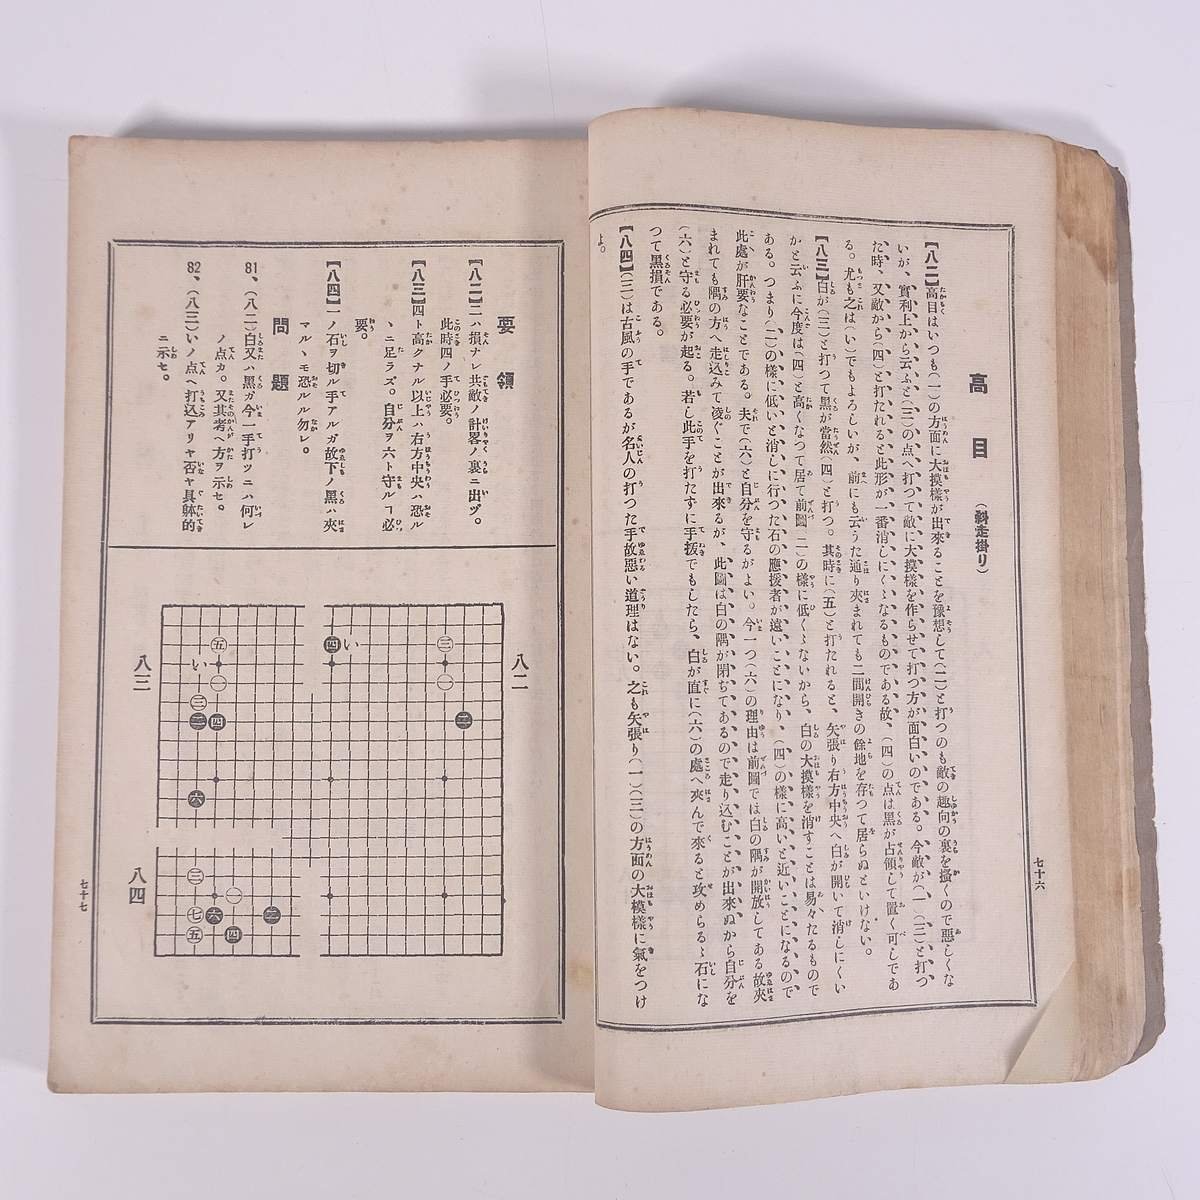 高目(斜走掛り)
【八二】高目はいつも(一)の方面に大摸樣が出來ることを豫想して(二)と打つのも敵の趣向の裏を搔くので惡しくな
いが、實利上から云ふと(三)の点へ打つて敵に大摸樣を作らせて打つ方が面白いのである。今敵が(一)(三)と打つ
た時、又敵から(四)と打たれると此形が一番消しにくゝなるものである故、(四)の点は黑が占領して置く可しであ
る。尤も之は(い)でもよろしいが、前にも云うた通り夾まれても二間開きの餘地を存つて居らぬといけない。
【八三】白が(三)と打つて黑が當然(四)と打つ。其時に(五)と打たれると、矢張り右方中央へ白が開いて消しにくい
かと云ふに今度は(四)と高くなつて居て前圖(二)の樣に低くないから、白の大摸樣を消すことは易々たるもので
ある。つまり(二)の樣に低いと消しに行つた石の應援者が遠いことになり、(四)の樣に高いと近いことになるので
此處が肝要なことである。夫で(六)と自分を守るがよい。今一つ(六)の理由は前圖では白の隅が開放してある故夾
まれても隅の方へ走込みて凌ぐことが出來るが、此圖は白の隅が閉ぢてあるので走り込むことが出來ぬから自分を
(六)と守る必要が起る。若し此手を打たずに手拔でもしたら、白が直に(六)の處へ夾んで來ると攻めらるゝ石にな
つて黑損である。
【八四】(三)は古風の手であるが名人の打つた手故惡い道理はない。之も矢張り(一)(三)の方面の大模樣に氣をつけ
よ。
七十六
要領
【八二】二ハ損ナレ共敵ノ計畧ノ裏ニ出ヅ。
此時四ノ手必要。
【八三】四ト高クナル以上ハ右方中央ハ恐ル
ヽニ足ラズ。自分ヲ六ト守ルヿ必
要。
【八四】一ノ石ヲ切ル手アルガ故下ノ黑ハ夾
マルヽモ恐ルル勿レ。
問題
81、(八二)白又ハ黑ガ今一手打ツニハ何レ
ノ点カ。又其考ヘ方ヲ示セ。
82、(八三)いノ点ヘ打込アリヤ否ヤ具體的
ニ示セ。
八二
三
一
二
四
い
八三
五
い
一
三
二
四
六
八四
三
一
七
六
二
五
四
七十七